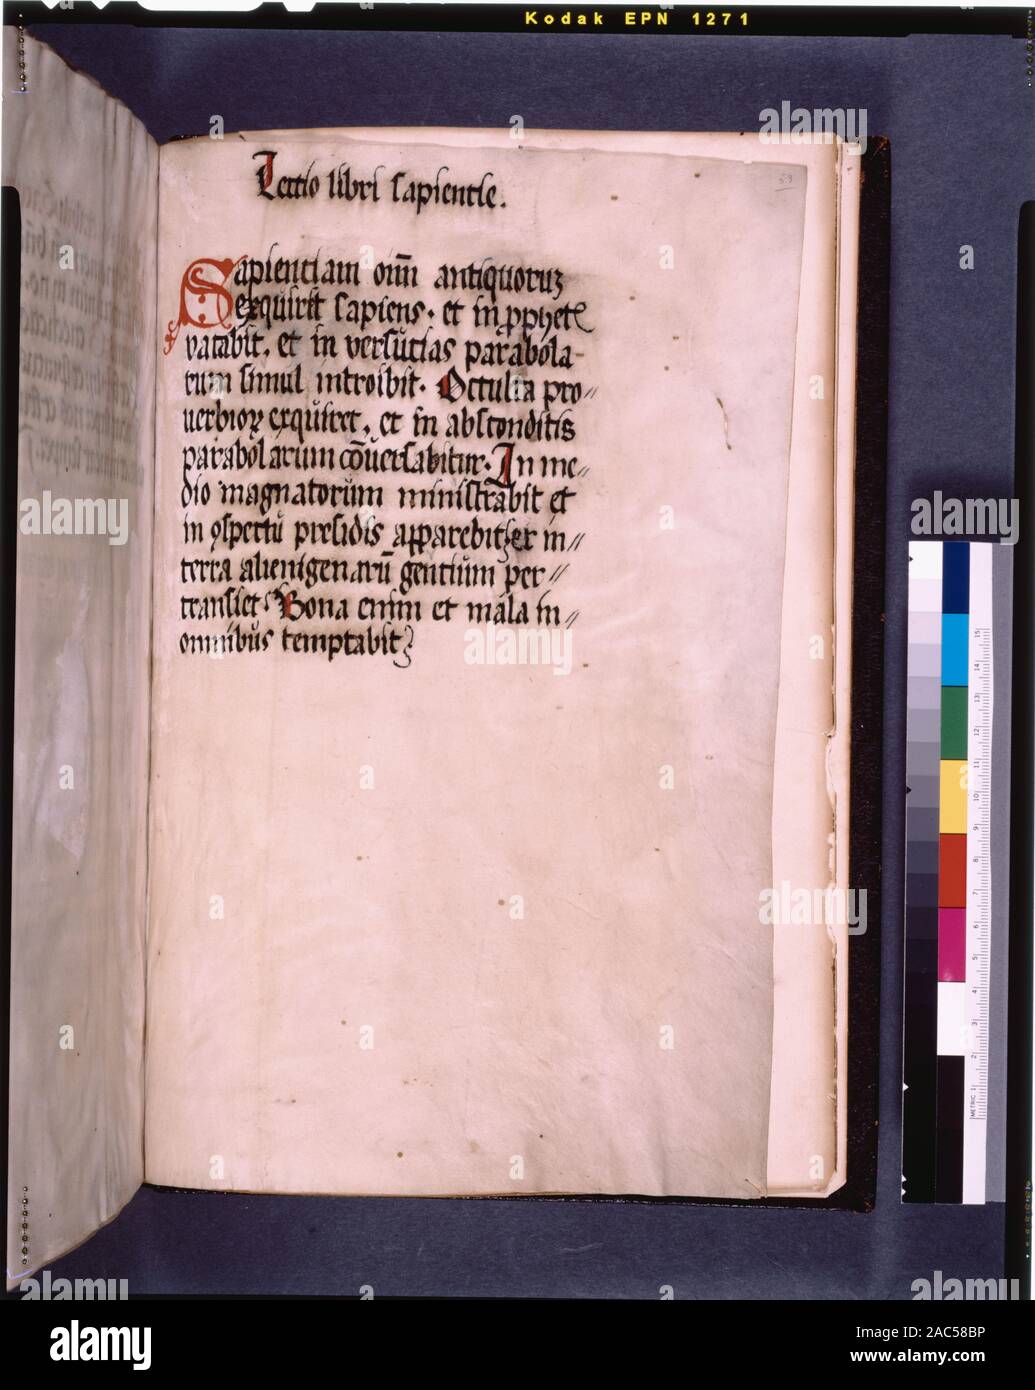 Kodak EPN 1271
59
Lectio libri sapientie.
Sapientiam oim̄ antiquoruꝫ
exquiret sapiens. et in ꝓphetꝭ
vacabit. et in versutias parabola-
rum simul introibit. Occulta pro//
uerbioꝝ exquiret, et in absconditis
parabolarum cōuersabitur. In me//
dio magnatorum ministrabit et
in ꝯspectu presidis apparebit. et in//
terra alienigenarū gentium per//
transiet. Bona enim et mala in//
omnibus temptabit
METRIC 1 2 3 4 5 6 7 8 9 10 11 12 13 14 15
alamy
a
alamy
Image ID: 2AC58BP
www.alamy.com